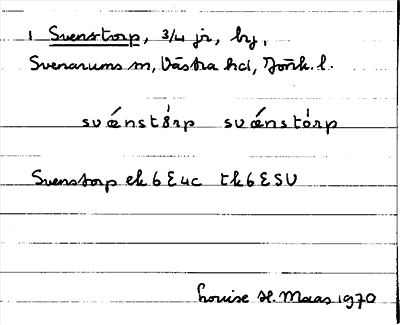 1 Svenstorp, 3/4 jr, by,
Svenarums sn, Västra hd, Jönk. l.
svǽnstȯrp svǽnstórp
Svenstorp ek 6 E 4c tk 6 E SV
Louise H. Maas 1970